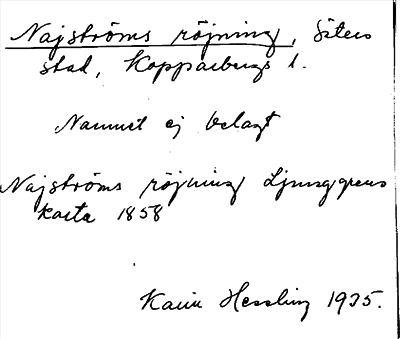 Najströms röjning, Säters
stad, Kopparbergs l.
Namnet ej belagt
Najströms röjning Ljunggrens
karta 1858
Karin Hessling 1935.